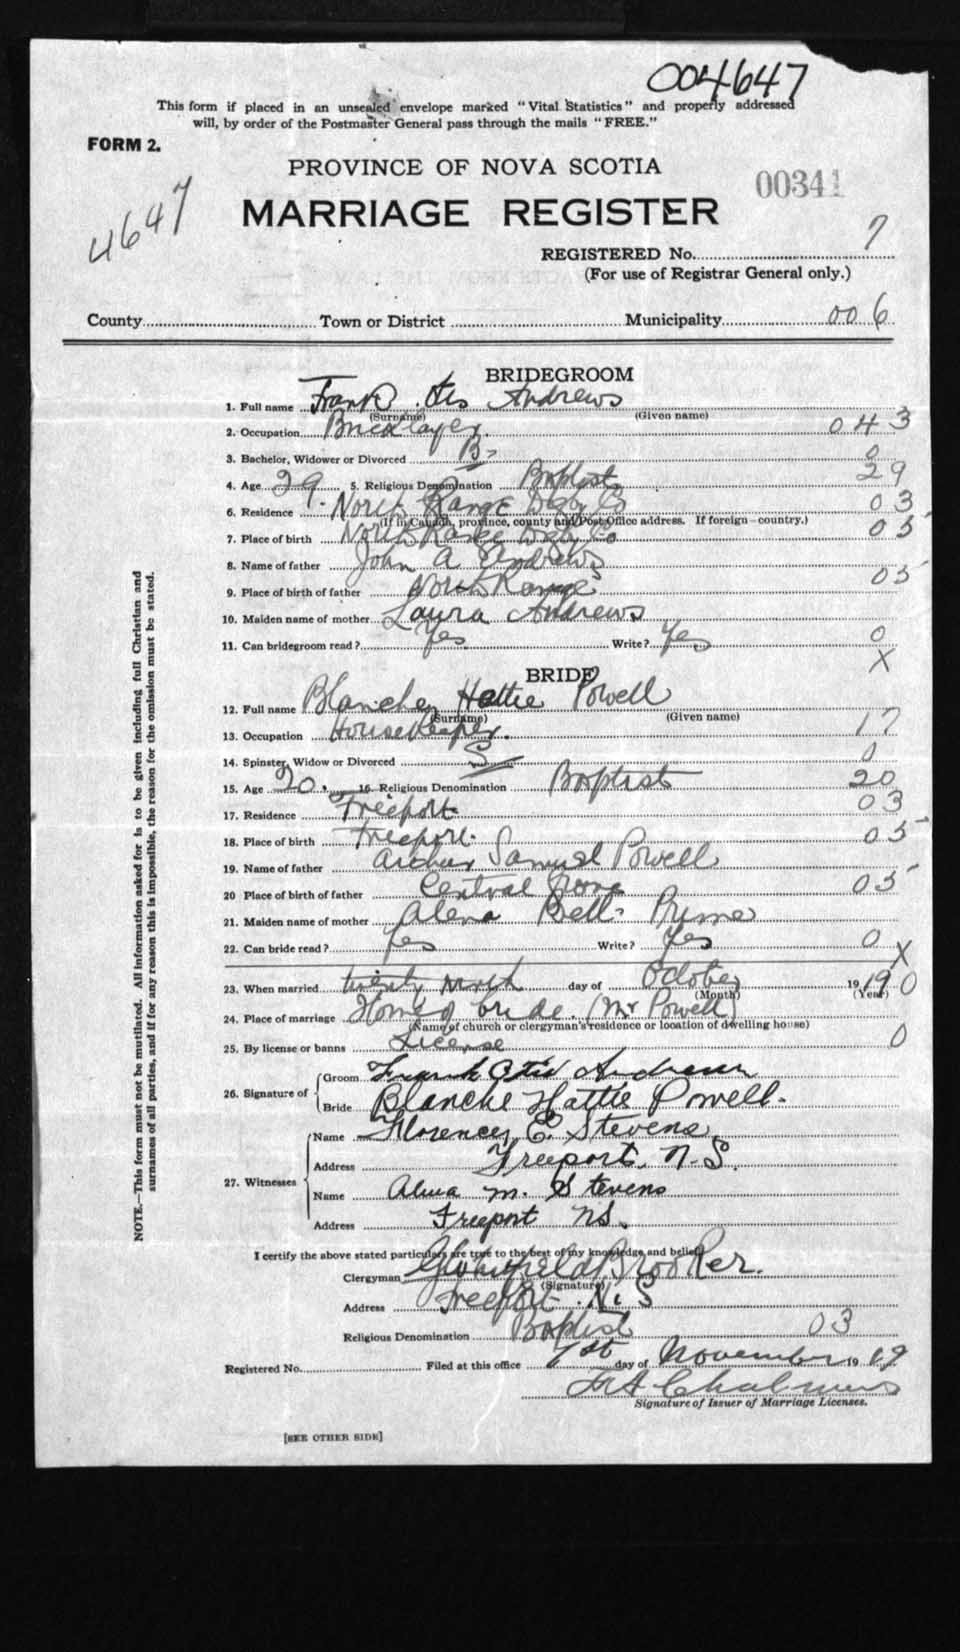 004647
This form if placed in an unsealed envelope marked "Vital Statistics" and properly addressed
will, by order of the Postmaster General pass through the mails "FREE."
FORM 2.
PROVINCE OF NOVA SCOTIA
00341
4647
MARRIAGE REGISTER
REGISTERED No. 7
(For use of Registrar General only.)
County Town or District Municipality 006
BRIDEGROOM
1. Full name Frank Otis Andrews
(Surname) (Given name)
2. Occupation Bricklayer. 043
3. Bachelor, Widower or Divorced B 0
4. Age 29. 5. Religious Denomination Baptist 29
6. Residence North Range Digby Co 03
(If in Canada, province, county and Post Office address. If foreign—country.)
7. Place of birth North Range Digby Co 05
8. Name of father John A Andrews
9. Place of birth of father North Range 05
10. Maiden name of mother Laura Andrews
11. Can bridegroom read? Yes Write? Yes 0
X
BRIDE
12. Full name Blanche Hattie Powell
(Surname) (Given name)
13. Occupation Housekeeper. 17
14. Spinster, Widow or Divorced S 0
15. Age 20. 16. Religious Denomination Baptist 20
17. Residence Freeport 03
18. Place of birth Freeport. 05
19. Name of father Samuel Powell
20 Place of birth of father Central Grove 05
21. Maiden name of mother Alena Bell
22. Can bride read? Yes Write? Yes 0
X
23. When married twenty ninth day of October 1919 0
(Month) (Year)
24. Place of marriage Home of bride. (Mr Powell)
(Name of church or clergyman's residence or location of dwelling house)
25. By license or banns License 0
26. Signature of Groom Frank Otis Andrews
Bride Blanche Hattie Powell.
27. Witnesses Name Florence E. Stevens
Address Freeport, N.S.
Name Alma M. Stevens
Address Freeport NS.
I certify the above stated particulars are true to the best of my knowledge and belief.
Clergyman Brooker.
(Signature)
Address Freeport. N.S
Religious Denomination Baptist 03
Registered No. Filed at this office 1st day of November 1919
Signature of Issuer of Marriage Licenses.
[SEE OTHER SIDE]
NOTE.—This form must not be mutilated. All information asked for is to be given including full Christian and
surnames of all parties, and if for any reason this is impossible, the reason for the omission must be stated.